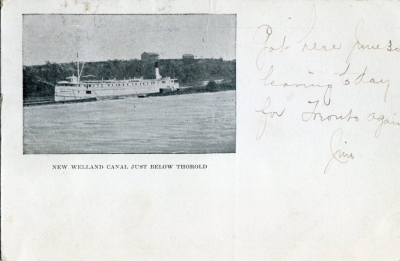 NEW WELLAND CANAL JUST BELOW THOROLD
Got here June 30
leaving today
for Toronto again
Jim